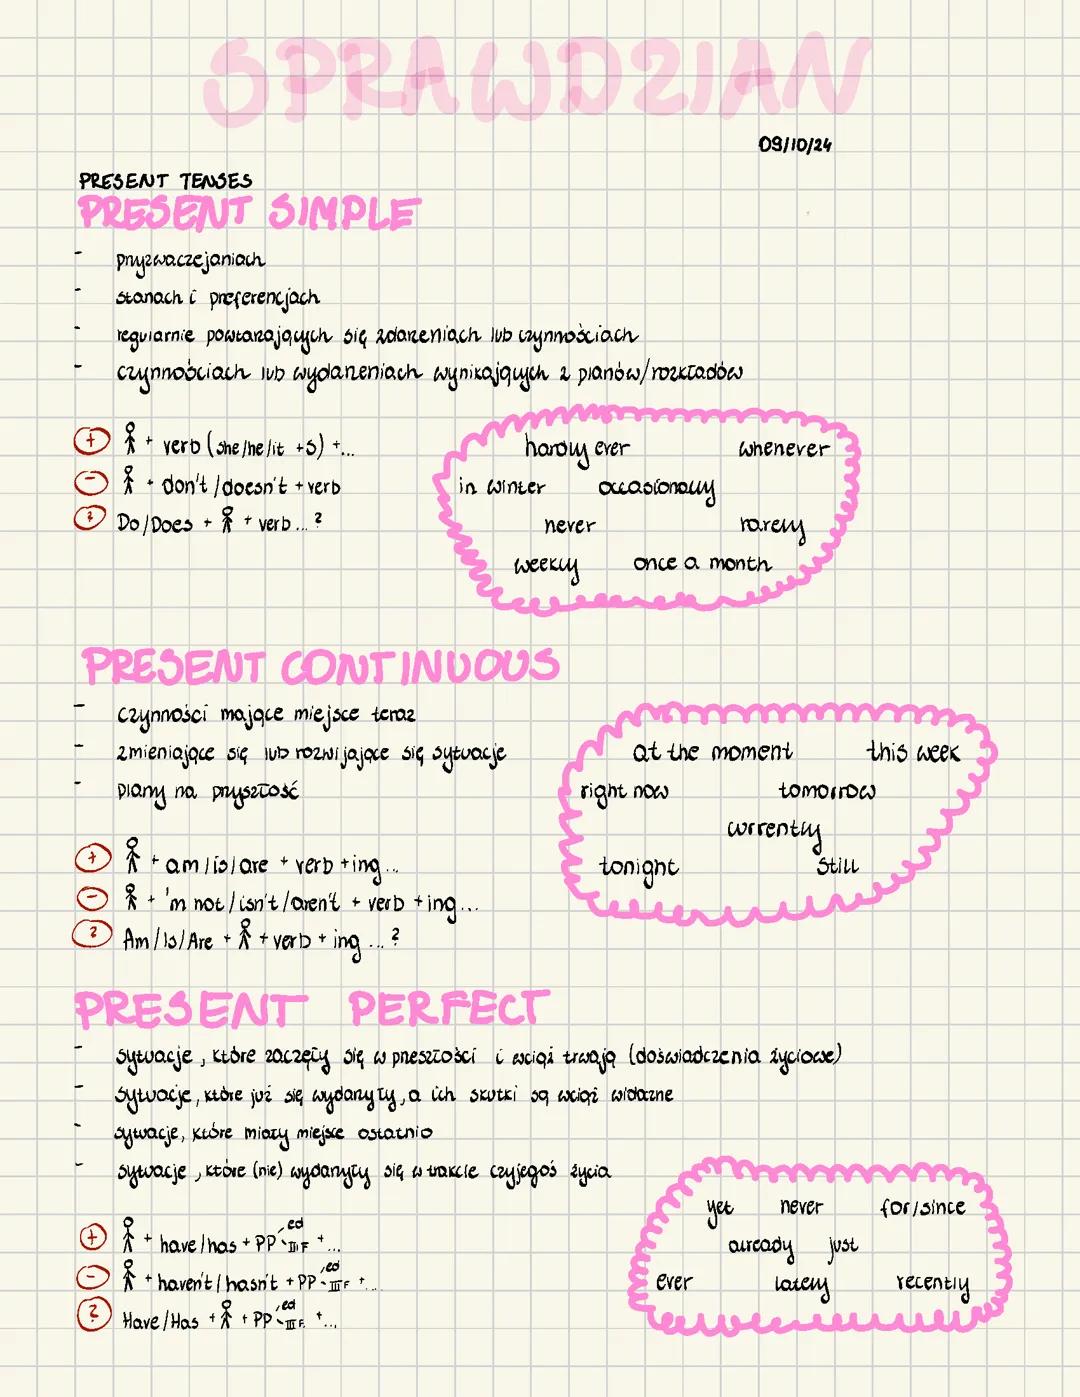 SPRAWDZIAN
09/10/24
PRESENT TENSES
PRESENT SIMPLE
- przyzwaczejaniach
- stanach i preferencjach
- regularnie powtarzających się zdarzeniach lub czynnościach
- czynnościach lub wydarzeniach wynikających z planów/rozkładów
+ + verb (she/he/it +s) +...
- + don't/doesn't + verb
? Do/Does + + verb...?
hardly ever whenever
in winter occasionally
never rarely
weekly once a month
PRESENT CONTINUOUS
- czynności mające miejsce teraz
- zmieniające się lub rozwijające się sytuacje
- plany na przyszłość
+ + am/is/are + verb + ing...
- + 'm not/isn't/aren't + verb + ing...
? Am/Is/Are + + verb + ing...?
at the moment this week
right now tomorrow
currently
tonight still
PRESENT PERFECT
- sytuacje, które zaczęły się w przeszłości i wciąż trwają (doświadczenia życiowe)
- sytuacje, które już się wydarzyły, a ich skutki są wciąż widoczne
- sytuacje, które miały miejsce ostatnio
- sytuacje, które (nie) wydarzyły się w trakcie czyjegoś życia
+ + have/has + PP ed III F +...
- + haven't/hasn't + PP ed III F +...
? Have/Has + + PP ed III F. +...
yet never for/since
already just
ever lately recently